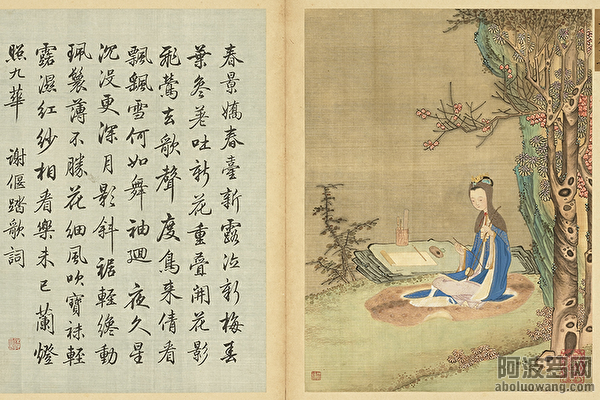 春景嬌春臺新露泣新梅春
葉参差吐新花重疊開花影
飛鶯去歌聲度鳥來倩看
飄颻雪何如舞袖迴 夜久星
沉没更深月影斜裾輕纔動
珮鬟薄不勝花細風吹寶袜輕
露濕紅紗相看樂未已蘭燈
照九華 謝偃踏歌詞
阿波罗网
aboluowang.com